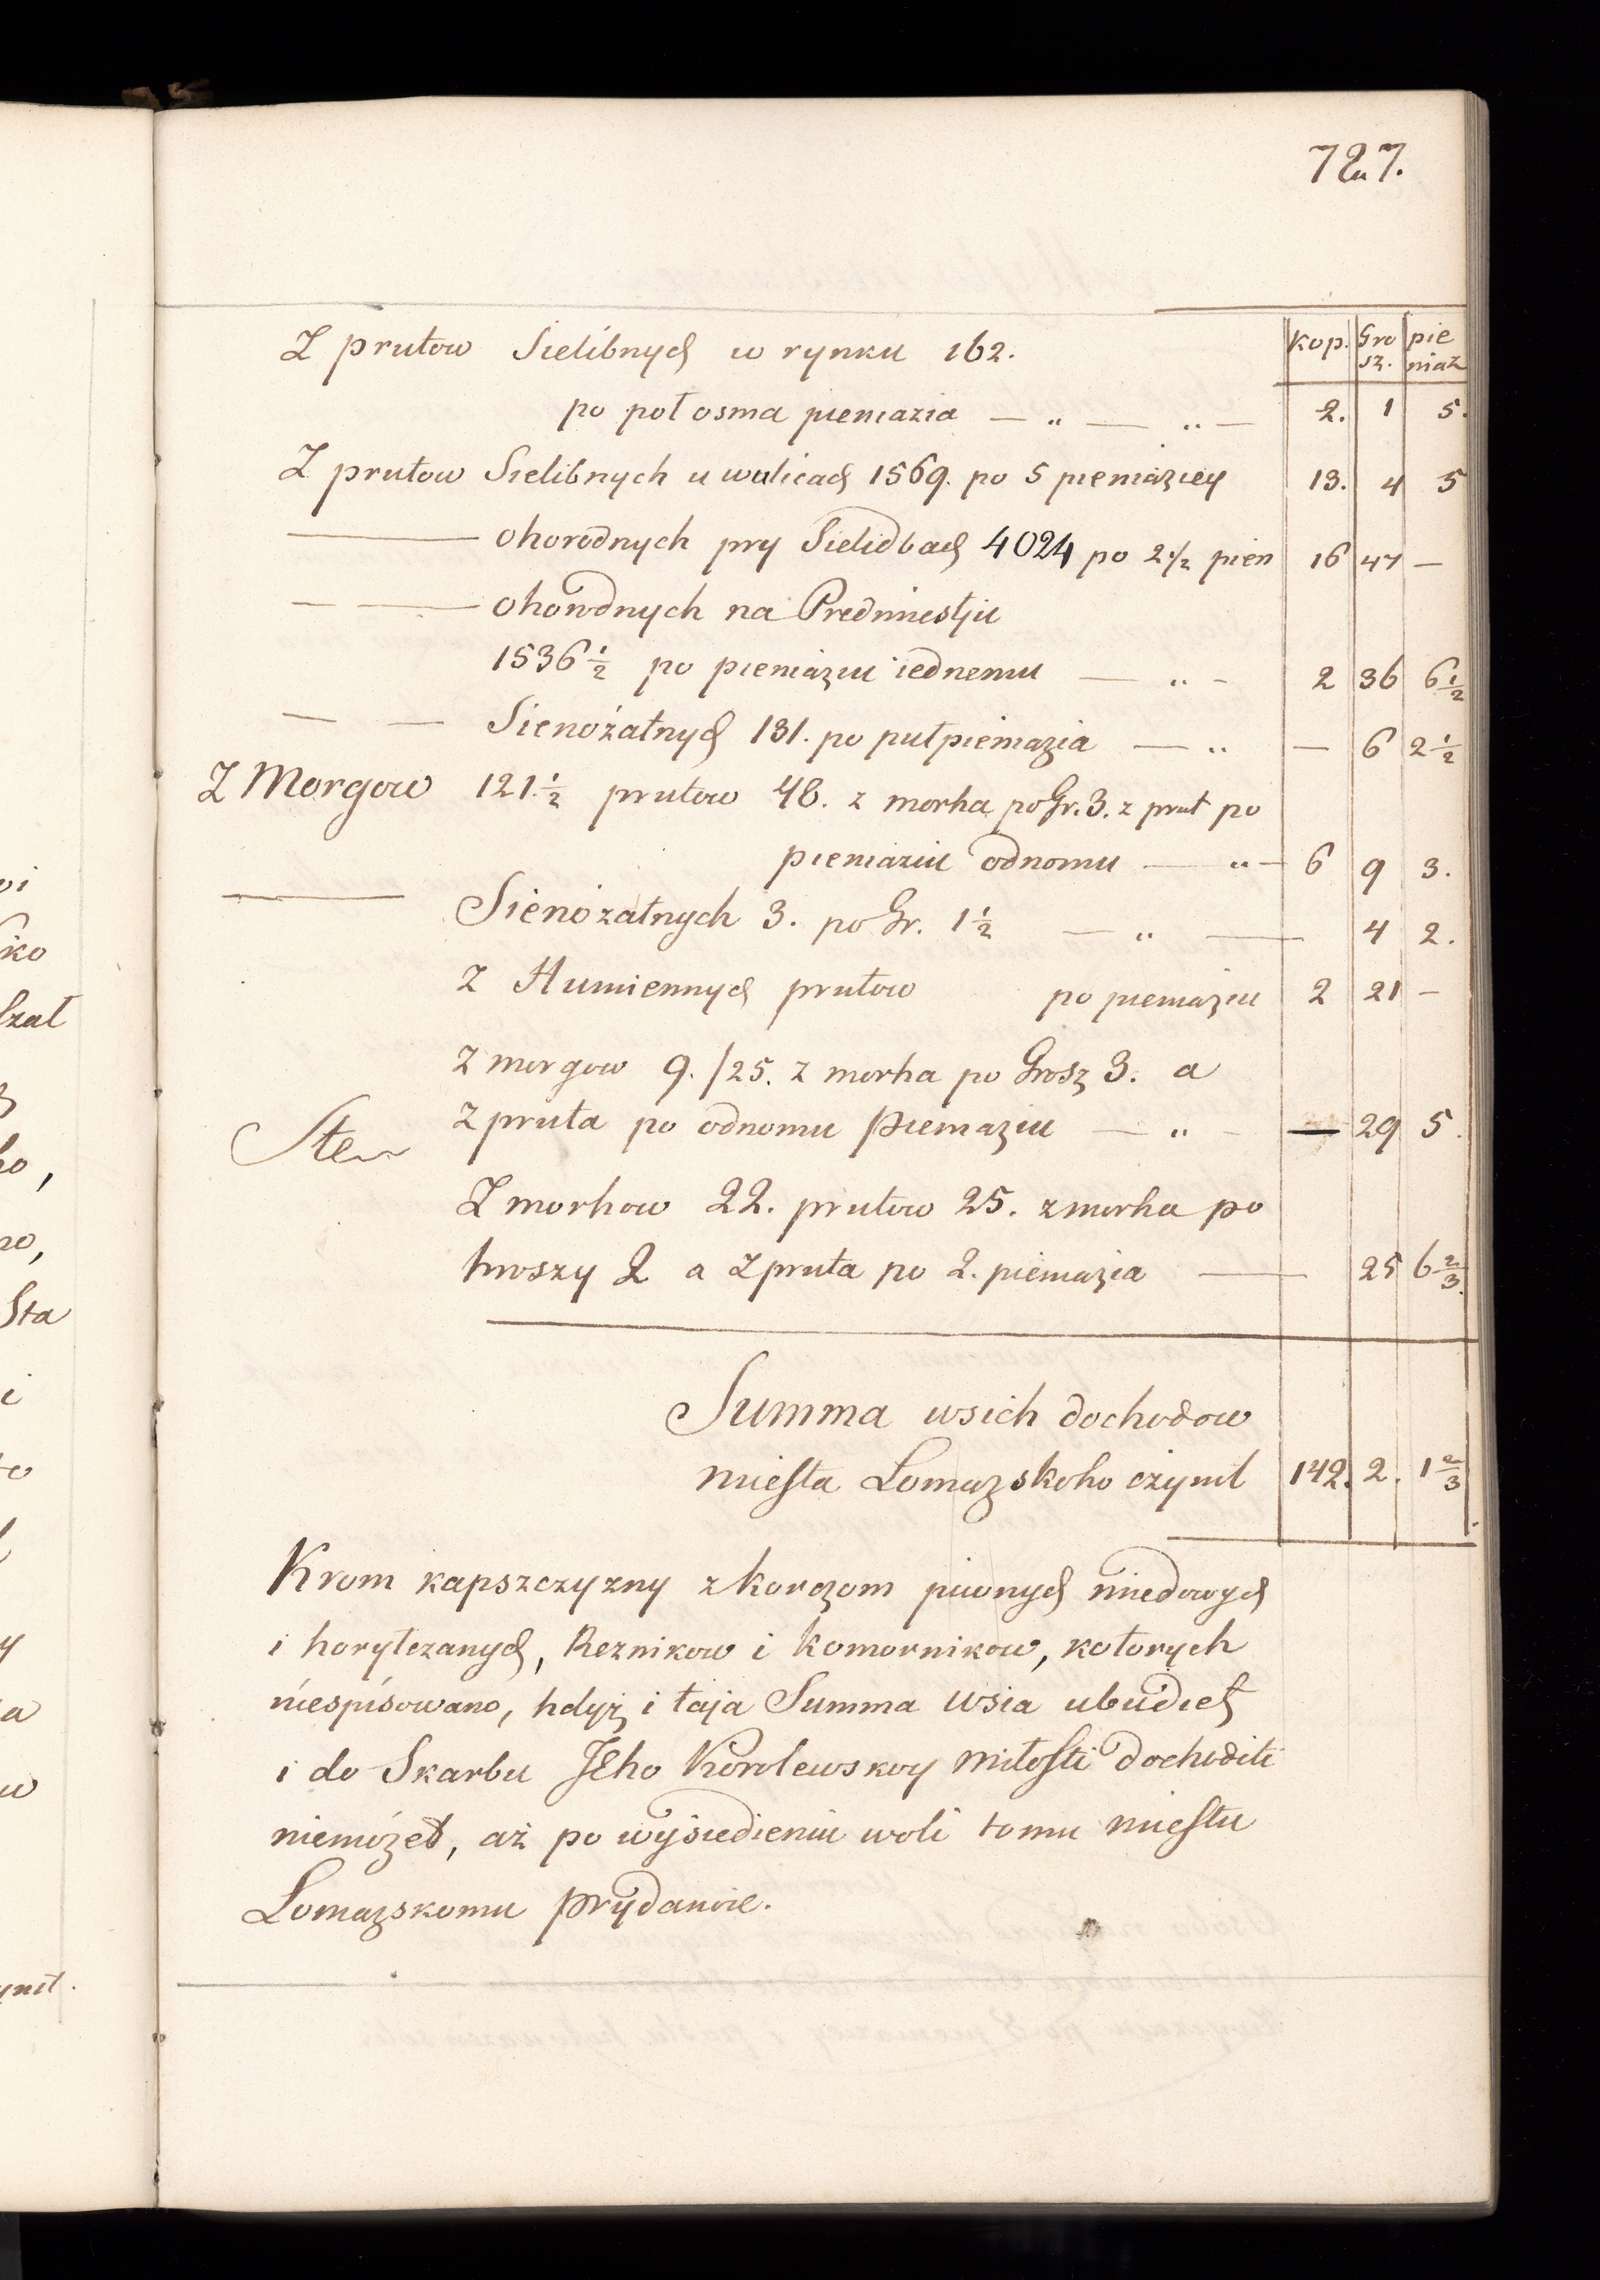 727.
Kop. Gro sz. pie niaz
Z prutow Sielibnych w rynku 162.
po poł osma pieniazia — „ — „ — 2. 1 5.
Z prutow Sielibnych u wulicach 1569. po 5 pieniaziey 13. 4 5
— ohorodnych pry Sielidbach 4024 po 2 1/2 pien 16 47 —
— — ohorodnych na Predmiestju
1536 1/2 po pieniaziu iednemu — „ - 2 36 6 1/2
— — Sienożatnych 131. po pułpieniazia — „ — 6 2 1/2
Z Morgow 121. 1/2 prutow 48. z morha po Gr. 3. z prut po
pieniaziu odnomu — „ — 6 9 3.
— Sienożatnych 3. po Gr. 1 1/2 — „ — 4 2.
Z Humiennych prutow po pieniaziu 2 21 —
Z morgow 9. /25. z morha po Grosz 3. a
z pruta po odnomu pieniaziu — „ - — 29 5.
Z morhow 22. prutow 25. z morha po
hroszy 2 a z pruta po 2. pieniazia — 25 6 2/3.
Summa wsich dochodow
miesta Łomazskoho czynit 142. 2. 1 2/3
Krom kapszczyzny z korczom piwnych miedowych
i horytczanych, Reznikow i Komornikow, kotorych
niespisowano, hdyż i taja Summa wsia ubudiet
i do Skarbu Jeho Korolewskoy miłosti dochoditi
niemożet, aż po wysiedieniu woli tomu miestu
Łomazskomu prydanoie.